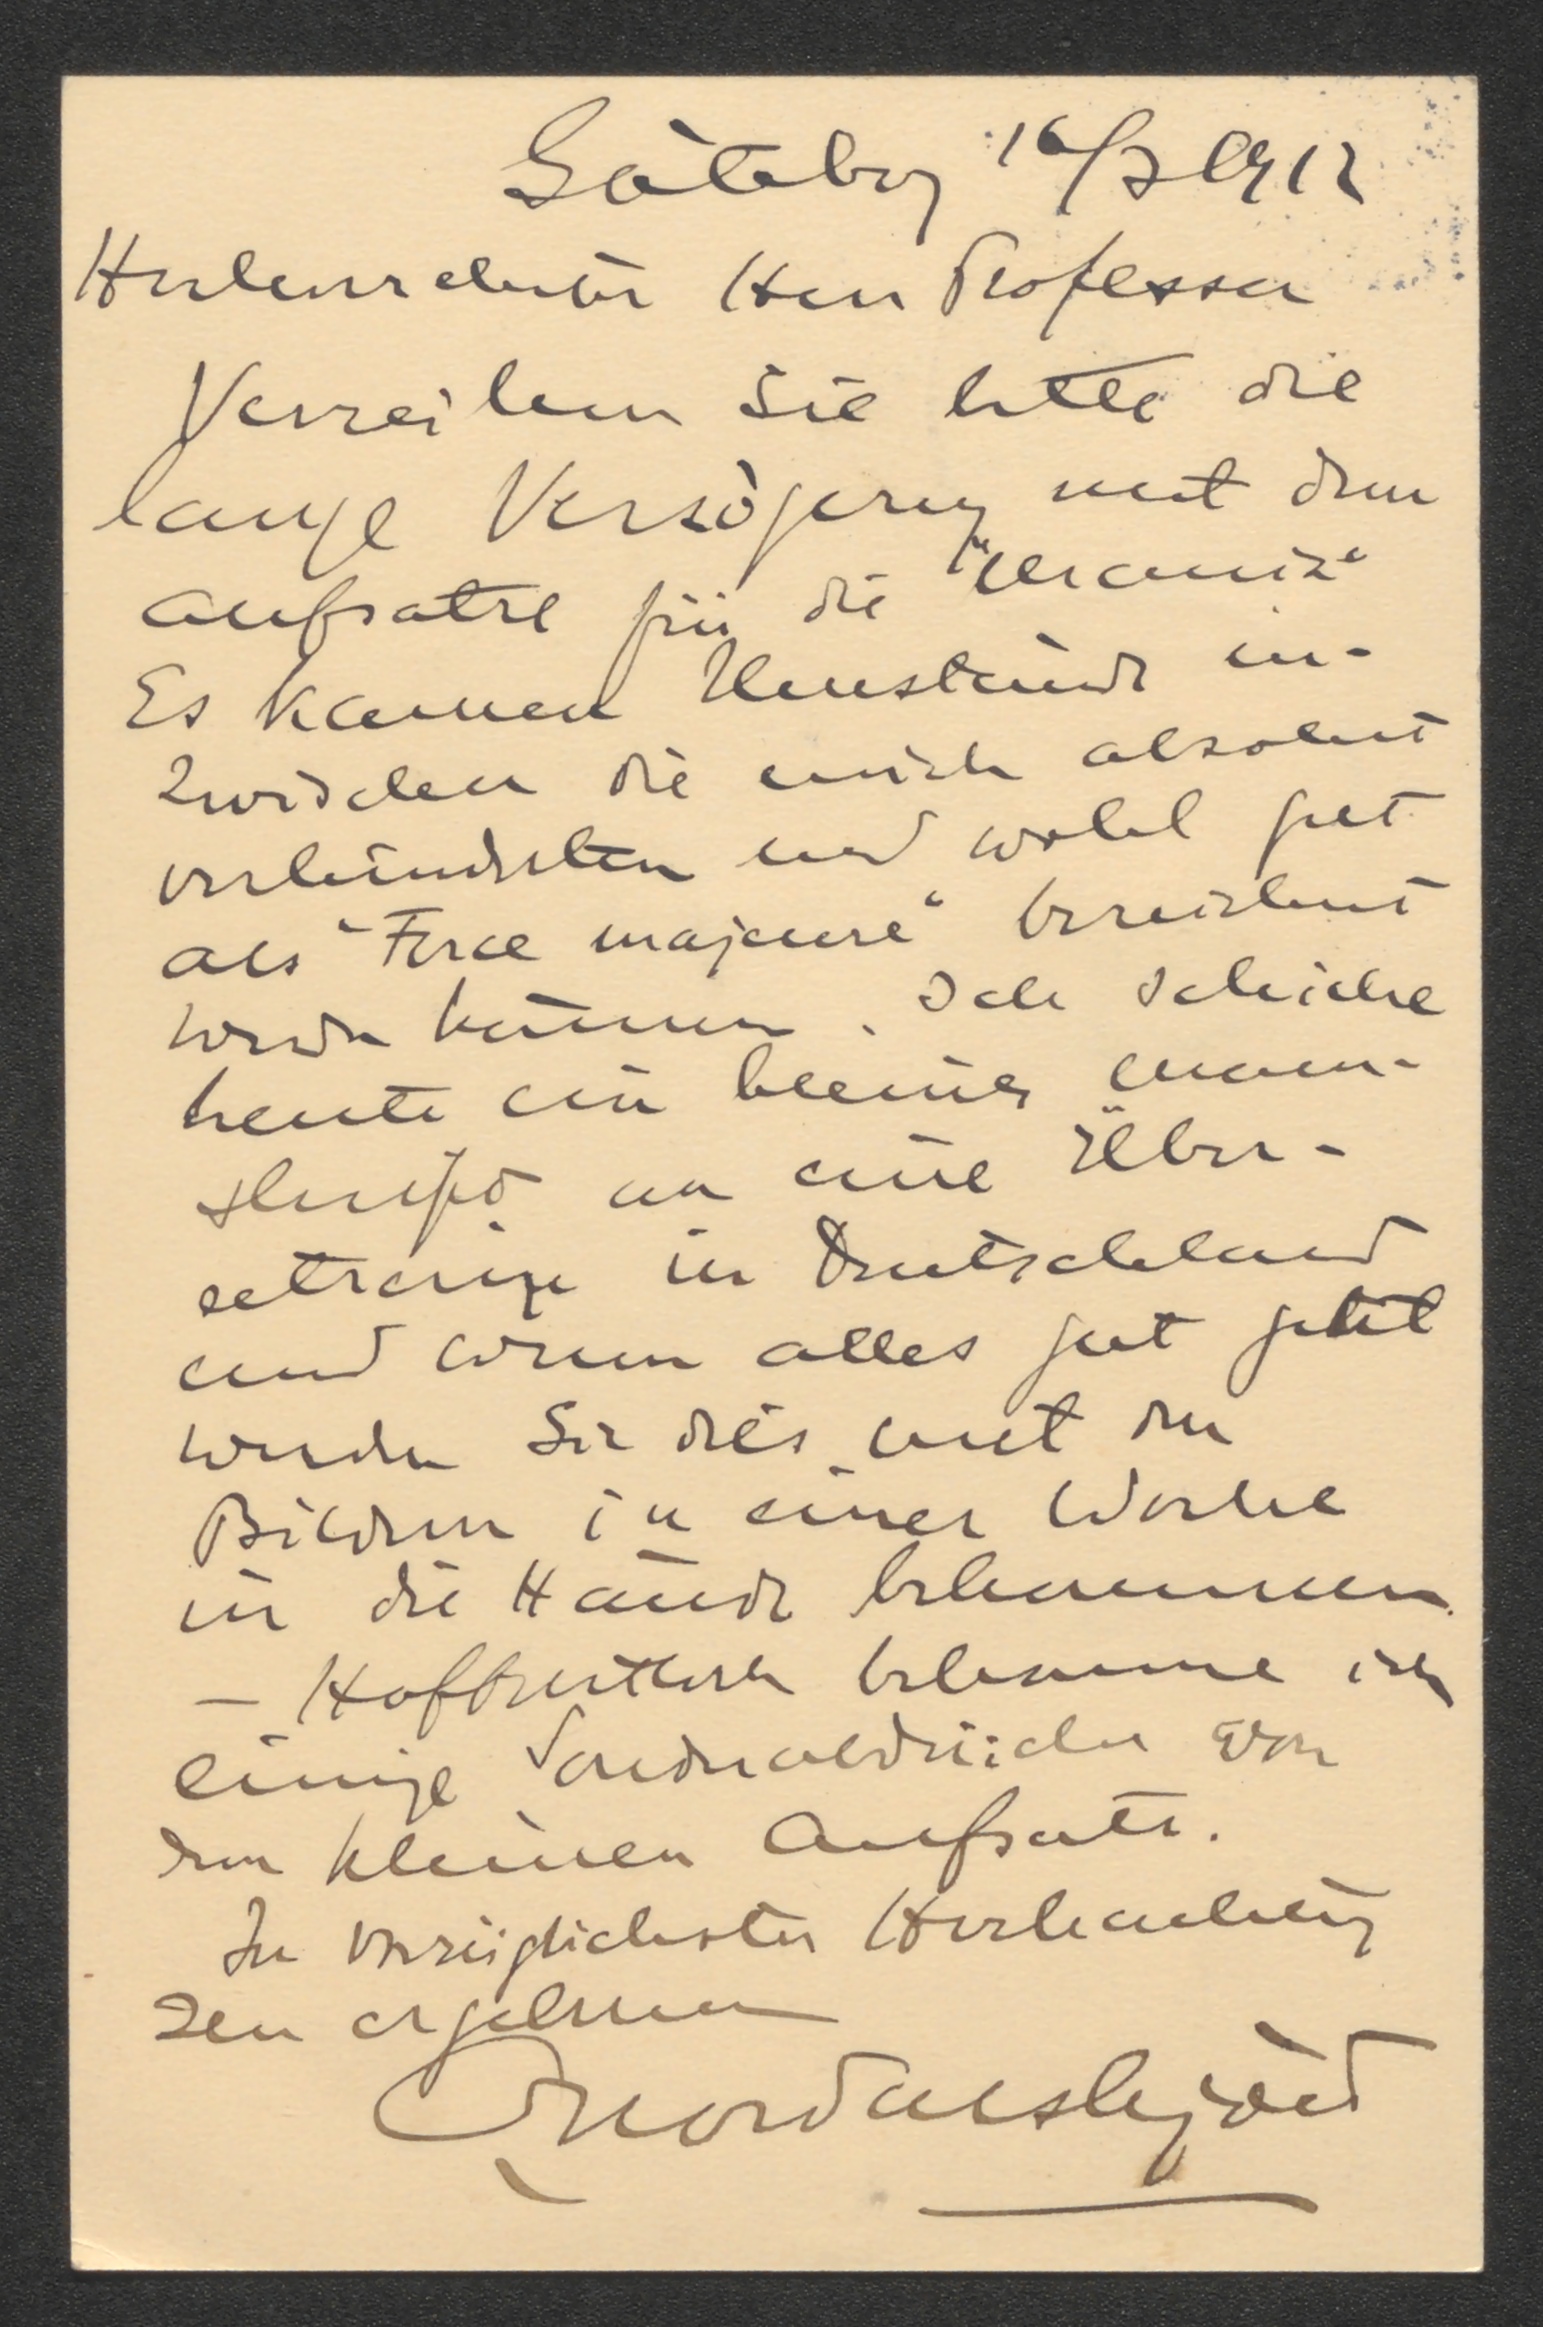 Göteborg 16/3 1912
Hochverehrter Herr Professor
Verzeihen Sie bitte die
lange Verzögerung mit dem
Aufsatze für die "Urania"
Es kamen Umstände in-
zwischen die mich absolut
verhinderten und wohl gut
als "Force majeure" bezeichnet
werden können. Ich schicke
heute ein kleines Manu-
skript an eine Über-
setzerin in Deutschland
und wenn alles gut geht
werden Sie dies mit den
Bildern in einer Woche
in die Hände bekommen.
– Hoffentlich bekomme ich
einige Sonderabdrücke von
dem kleinen Aufsatz.
In vorzüglichster Hochachtung
Ihr ergebener
Nordenskjöld